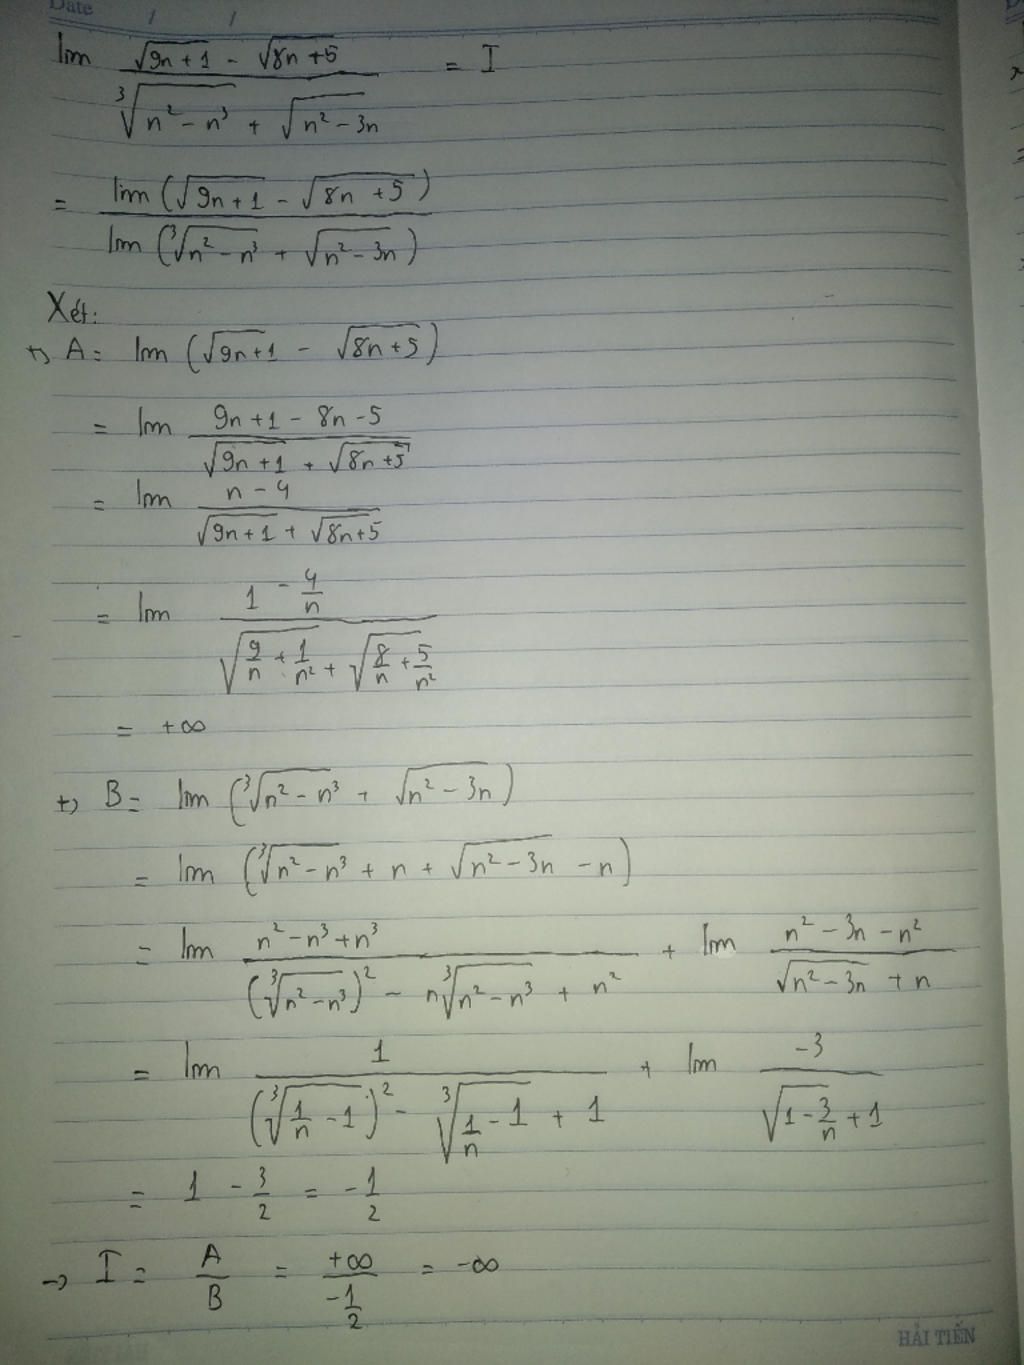 Date / /
lim (√(9n+1) - √(8n+5)) / (∛(n² - n³) + √(n² - 3n)) = I
= lim (√(9n+1) - √(8n+5)) / lim (∛(n² - n³) + √(n² - 3n))
Xét:
+) A = lim (√(9n+1) - √(8n+5))
= lim (9n+1 - 8n - 5) / (√(9n+1) + √(8n+5))
= lim (n - 4) / (√(9n+1) + √(8n+5))
= lim (1 - 4/n) / (√(9/n + 1/n²) + √(8/n + 5/n²))
= +∞
+) B = lim (∛(n² - n³) + √(n² - 3n))
= lim (∛(n² - n³) + n + √(n² - 3n) - n)
= lim (n² - n³ + n³) / ((∛(n² - n³))² - n∛(n² - n³) + n²) + lim (n² - 3n - n²) / (√(n² - 3n) + n)
= lim 1 / ((∛(1/n - 1))² - ∛(1/n - 1) + 1) + lim -3 / (√(1 - 3/n) + 1)
= 1 - 3/2 = -1/2
→ I = A/B = +∞ / (-1/2) = -∞
HẢI TIẾN